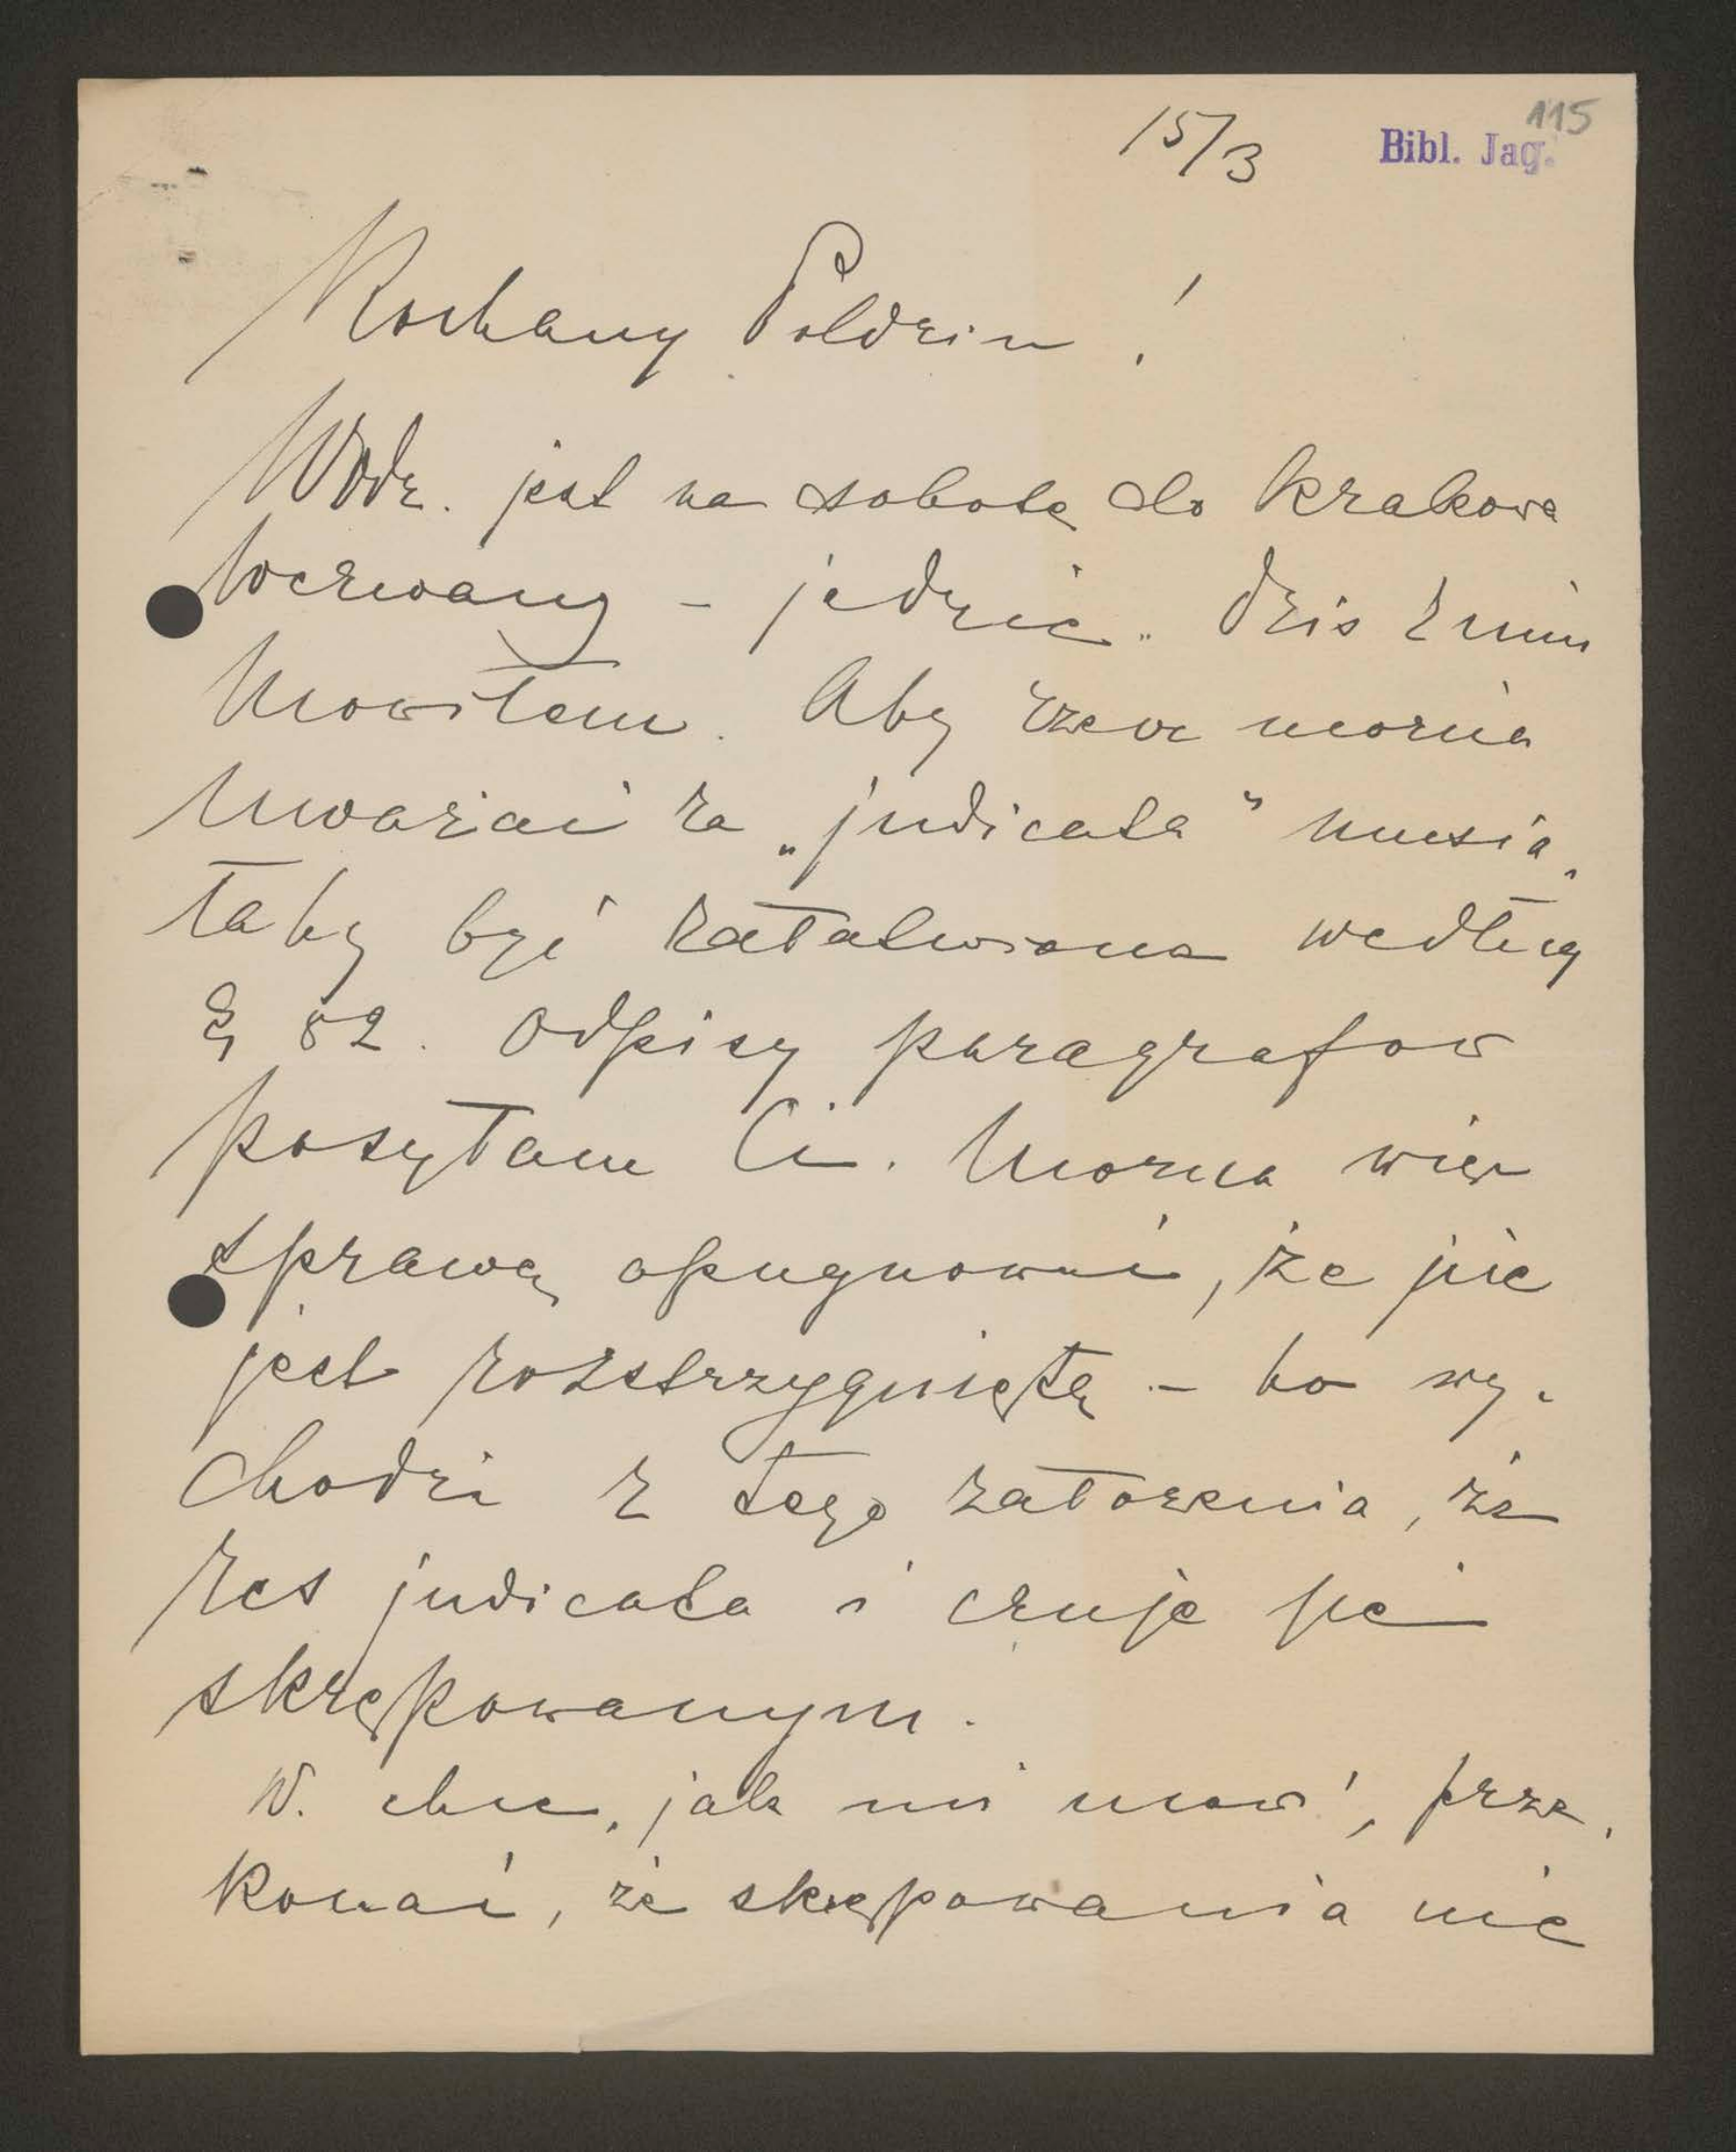 115
15/3 Bibl. Jag.
Kochany Poldziu!
Wodz. jest na sobotę do Krakowa
wezwany – jedzie. Dziś z nim
mówiłem. Aby rzecz można
uważać za „judicata" musia-
łaby być załatwiona według
§ 82. Odpisy paragrafów
posyłam Ci. Można więc
sprawę opugnować, że nie
jest rozstrzygniętą – bo wy-
chodzi z tego założenia, że
res judicata i czuje się
skrępowanym.
W. chce, jak mi mówi, prze-
konać, że skrępowania nie